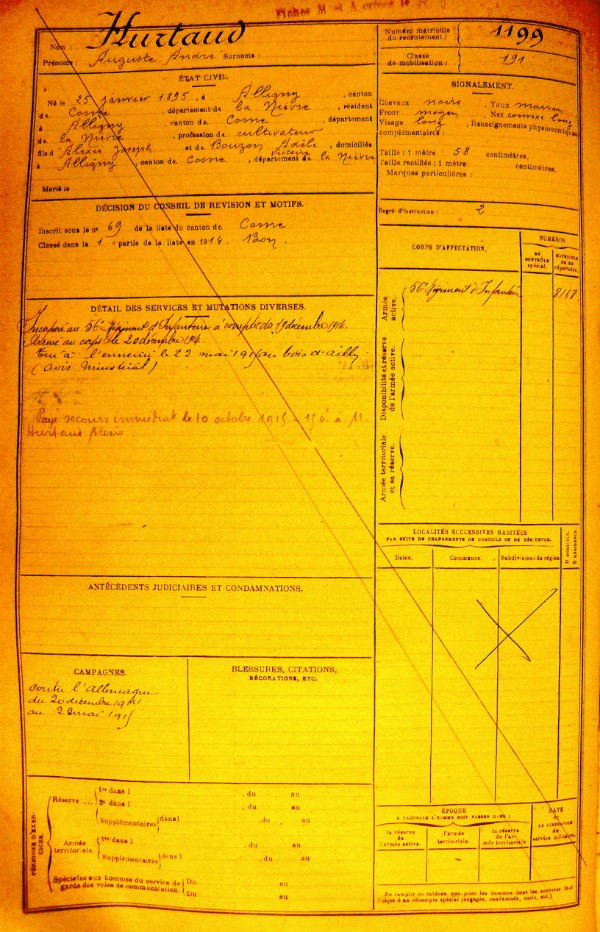 Fiches M et A
Nom : Hurtaud
Prénoms : Auguste André Surnoms :
ÉTAT CIVIL.
Né le 25 janvier 1895, à Alligny, canton
de Cosne, département de la Nièvre, résidant
à Alligny, canton de Cosne, département
de la Nièvre, profession de cultivateur
fils d'Alexis Joseph et de Bouzon Adèle, domiciliés
à Alligny, canton de Cosne, département de la Nièvre
Marié le
DÉCISION DU CONSEIL DE REVISION ET MOTIFS.
Inscrit sous le n° 69 de la liste du canton de Cosne
Classé dans la 1 partie de la liste en 1914. Bon.
DÉTAIL DES SERVICES ET MUTATIONS DIVERSES.
Incorporé au 56e Régiment d'Infanterie à compter du 19 décembre 1914.
Arrivé au corps le 20 décembre 1914.
Tué à l'ennemi le 22 mai 1915 au bois d'ailly
(avis ministériel)
Payé secours immédiat le 10 octobre 1915 150f à M.
Hurtaud Alexis
ANTÉCÉDENTS JUDICIAIRES ET CONDAMNATIONS.
CAMPAGNES.
contre l'allemagne
du 20 décembre 1914
au 22 mai 1915
BLESSURES, CITATIONS,
DÉCORATIONS, ETC.
PÉRIODES D'EXERCICES.
Réserve
1re dans l , du au
2e dans l , du au
Supplémentaires dans l , du au
Armée
territoriale.
1re dans l , du au
Supplémentaires dans l , du au
Spéciales aux hommes du service de
garde des voies de communication.
Du au
Du au
Numéro matricule
du recrutement :
1199
Classe
de mobilisation :
191
SIGNALEMENT.
Cheveux noirs, Yeux marron
Front moyen, Nez convexe long
Visage long, Renseignements physionomiques
complémentaires :
Taille : 1 mètre 58 centimètres.
Taille rectifiée : 1 mètre centimètres.
Marques particulières :
Degré d'instruction : 2
CORPS D'AFFECTATION.
NUMÉROS
AU CONTRÔLE spécial.
MATRICULE OU AU répertoire.
Armée
active.
56e Régiment d'Infanterie
8167
Disponibilité et réserve
de l'armée active.
Armée territoriale
et sa réserve.
LOCALITÉS SUCCESSIVES HABITÉES
PAR SUITE DE CHANGEMENTS DE DOMICILE OU DE RÉSIDENCE.
Dates.
Communes.
Subdivisions de région
D DOMICILE.
R RÉSIDENCE.
ÉPOQUE
À LAQUELLE L'HOMME DOIT PASSER DANS :
la réserve
de l'armée active.
l'armée
territoriale.
la réserve
de l'armée territoriale
DATE
de
LA LIBÉRATION
du service militaire.
Ne remplir ce tableau que pour les hommes dont les services font
l'objet d'un décompte spécial (engagés, condamnés, omis, etc.)